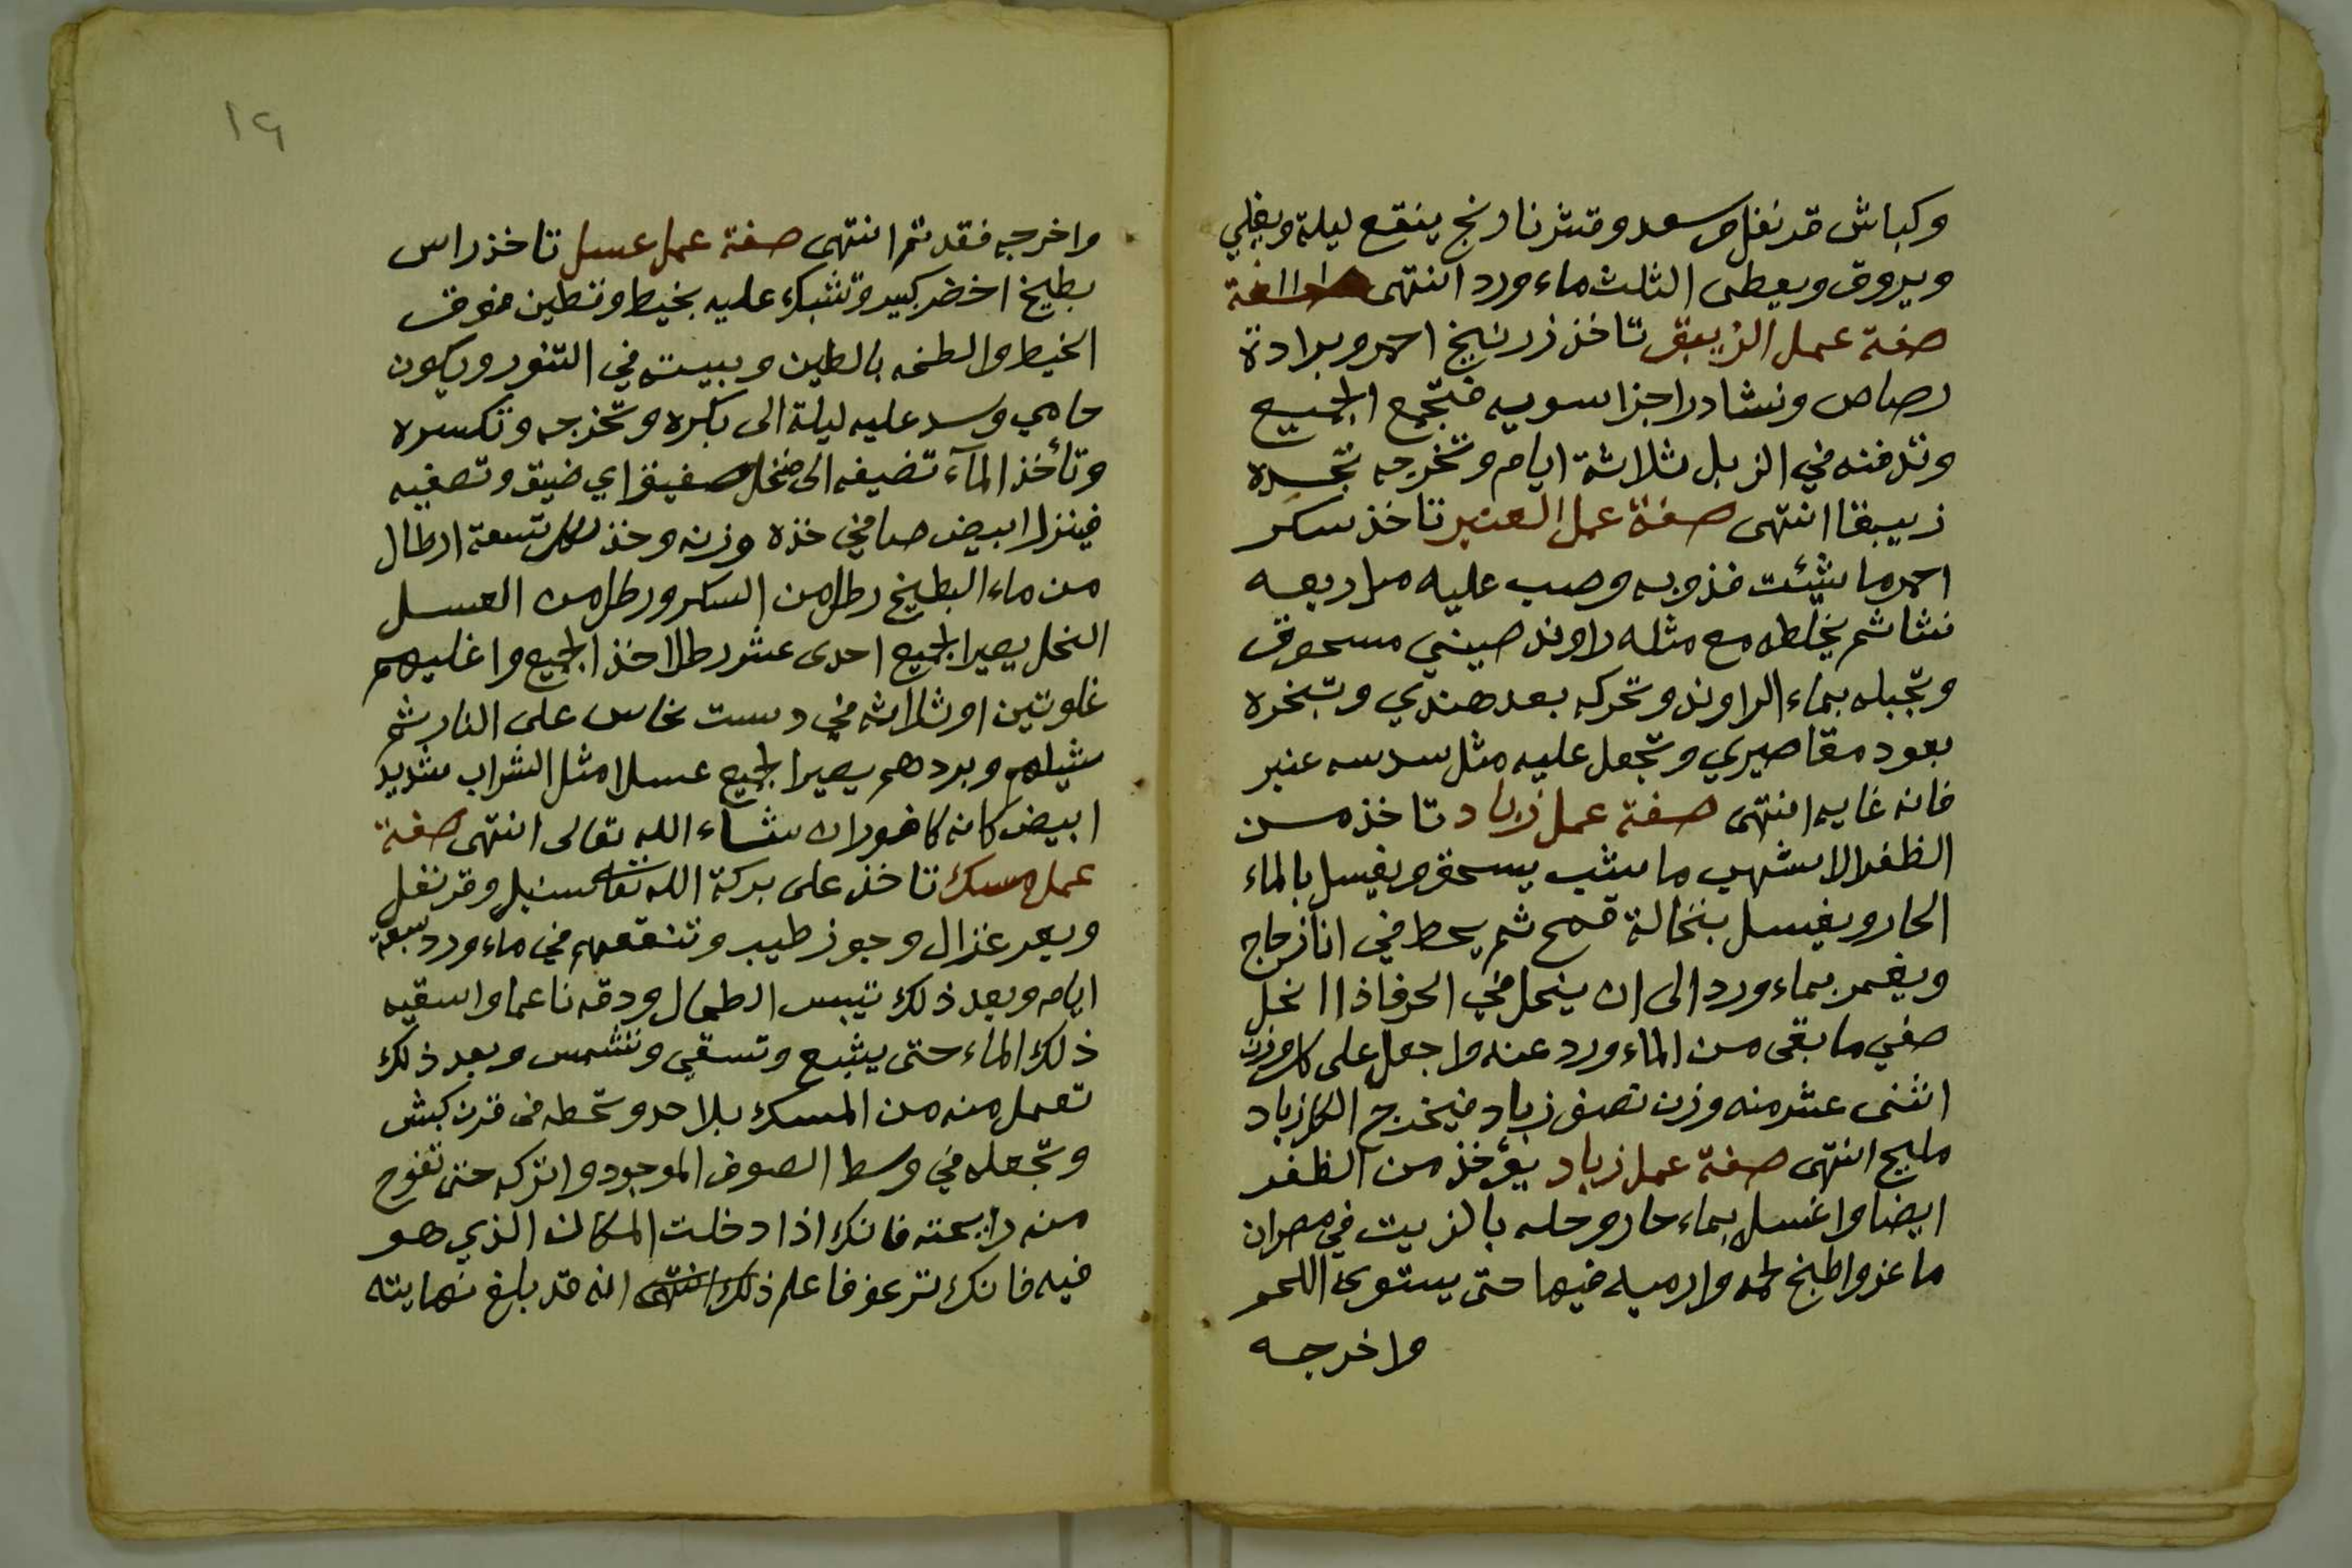 وكباش قرنفل وسعد وقشر نارنج ينقع ليلة ويغلي
ويروق ويعطى الثلث ماء ورد انتهى
صفة عمل الزيبق تاخذ زرنيخ احمر وبرادة
رصاص ونشادر اجزا سويه فتجمع الجميع
وتدفنه في الزبل ثلاثة ايام وتخرجه تجده
زيبقا انتهى صفة عمل العنبر تاخذ سكر
احمر ما شئت فذوبه وصب عليه مل ربعه
نشا ثم يخلطه مع مثله راوند صيني مسحوق
وتجبله بماء الراوند وتحركه بعد هندي وتبخره
بعود مقاصيري وتجعل عليه مثل سدسه عنبر
فانه غايه انتهى صفة عمل زباد تاخذ من
الظفر الاشهب ما شب يسحق ويغسل بالماء
الحار ويغسل بنخالة قمح ثم يحط في انا زجاج
ويغمر بماء ورد الى ان ينحل في الحر فاذا انحل
صفي ما بقى من الماء ورد عنه واجعل على كل وزن
اثنى عشر منه وزن نصف زباد فيخرج الكل زباد
مليح انتهى صفة عمل زباد يؤخذ من الظفر
ايضا واغسل بماء حار وحله بالزيت في مصران
ماعز واطبخ لحم وارميه فيها حتى يستوى اللحم
واخرجه
١٩
واخرجه فقد تم انتهى صفة عمل عسل تاخذ راس
بطيخ اخضر كبير وتشبك عليه بخيط وتطين فوق
الخيط والطخه بالطين وبيته في التنور ويكون
حامي وسد عليه ليلة الى بكره وتخرجه وتكسره
وتأخذ المآء تضيفه الى منخل صفيق اي ضيق وتصفيه
فينزل ابيض صافي خذه وزنه وخذ لكل تسعة ارطال
من ماء البطيخ رطل من السكر ورطل من العسل
النحل يصير الجميع احدى عشر رطلا خذ الجميع واغليهم
غلوتين او ثلاثه في دست نحاس على النار ثم
شيلهم وبردهم يصير الجميع عسلا مثل الشراب شديد
ابيض كانه كافور ان شاء الله تعالى انتهى صفة
عمل مسك تاخذ على بركة الله تعالى سنبل وقرنفل
وبعر غزال وجوز طيب وتنقعهم في ماء ورد سبعة
ايام وبعد ذلك تيبس الطحال ودقه ناعما واسقيه
ذلك الماء حتى يشبع وتسقي وتشمس وبعد ذلك
تعمل منه من المسك بلا حد وتحطه فى قرن كبش
وتجعله في وسط الصوف الموجود واتركه حتى تفوح
منه رايحته فانك اذا دخلت المكان الذي هو
فيه فانك ترعف فاعلم ذلك انتهى انه قد بلغ نهايته